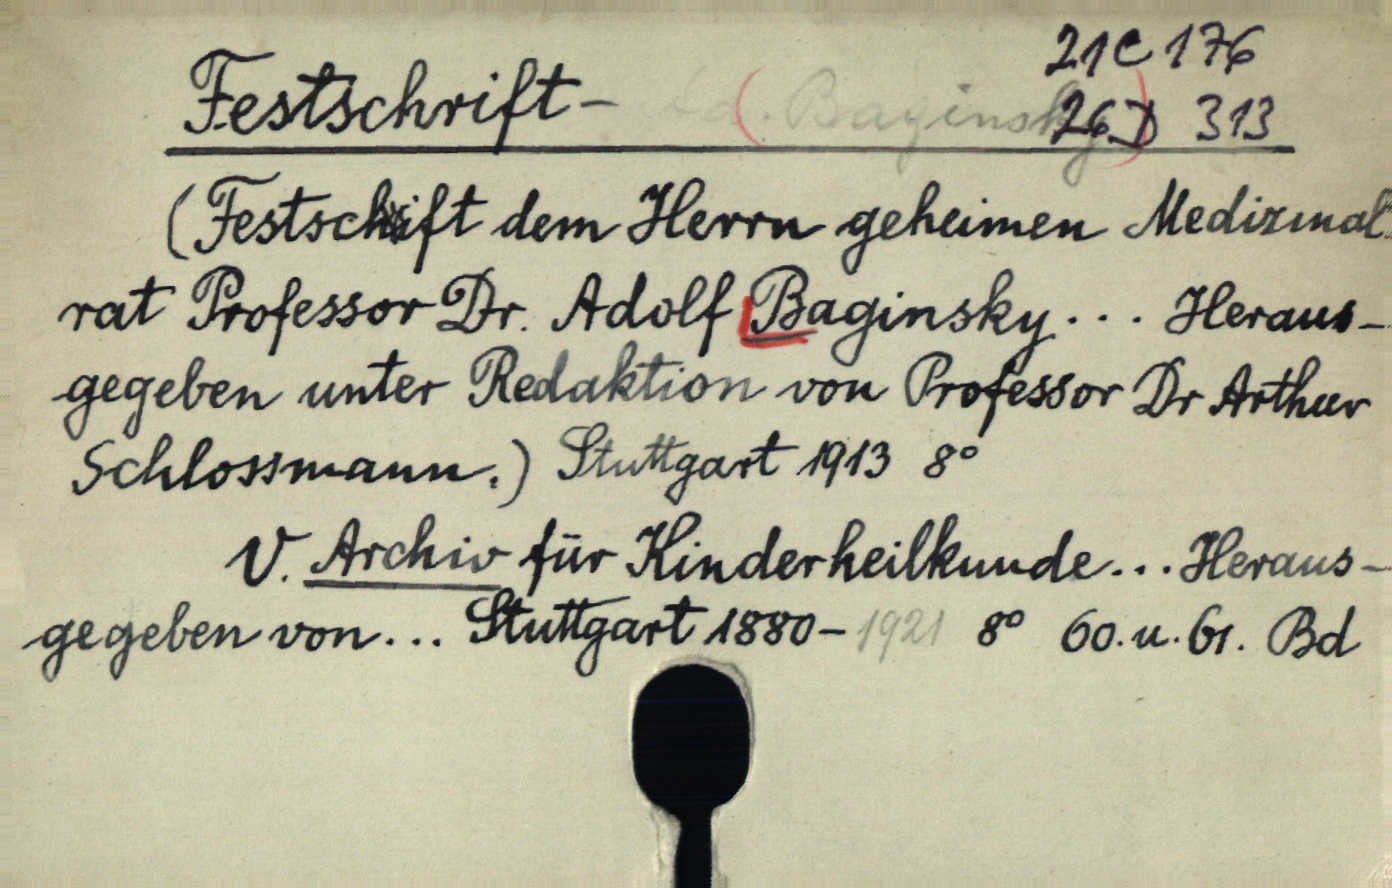 21C 176
Festschrift- Ad. (Baginsky) 26D 313
(Festschrift dem Herrn geheimen Medizinal-
rat Professor Dr. Adolf Baginsky... Heraus-
gegeben unter Redaktion von Professor Dr Arthur
Schlossmann.) Stuttgart 1913 8°
V. Archiv für Kinderheilkunde... Heraus-
gegeben von... Stuttgart 1880-1921 8° 60. u. 61. Bd